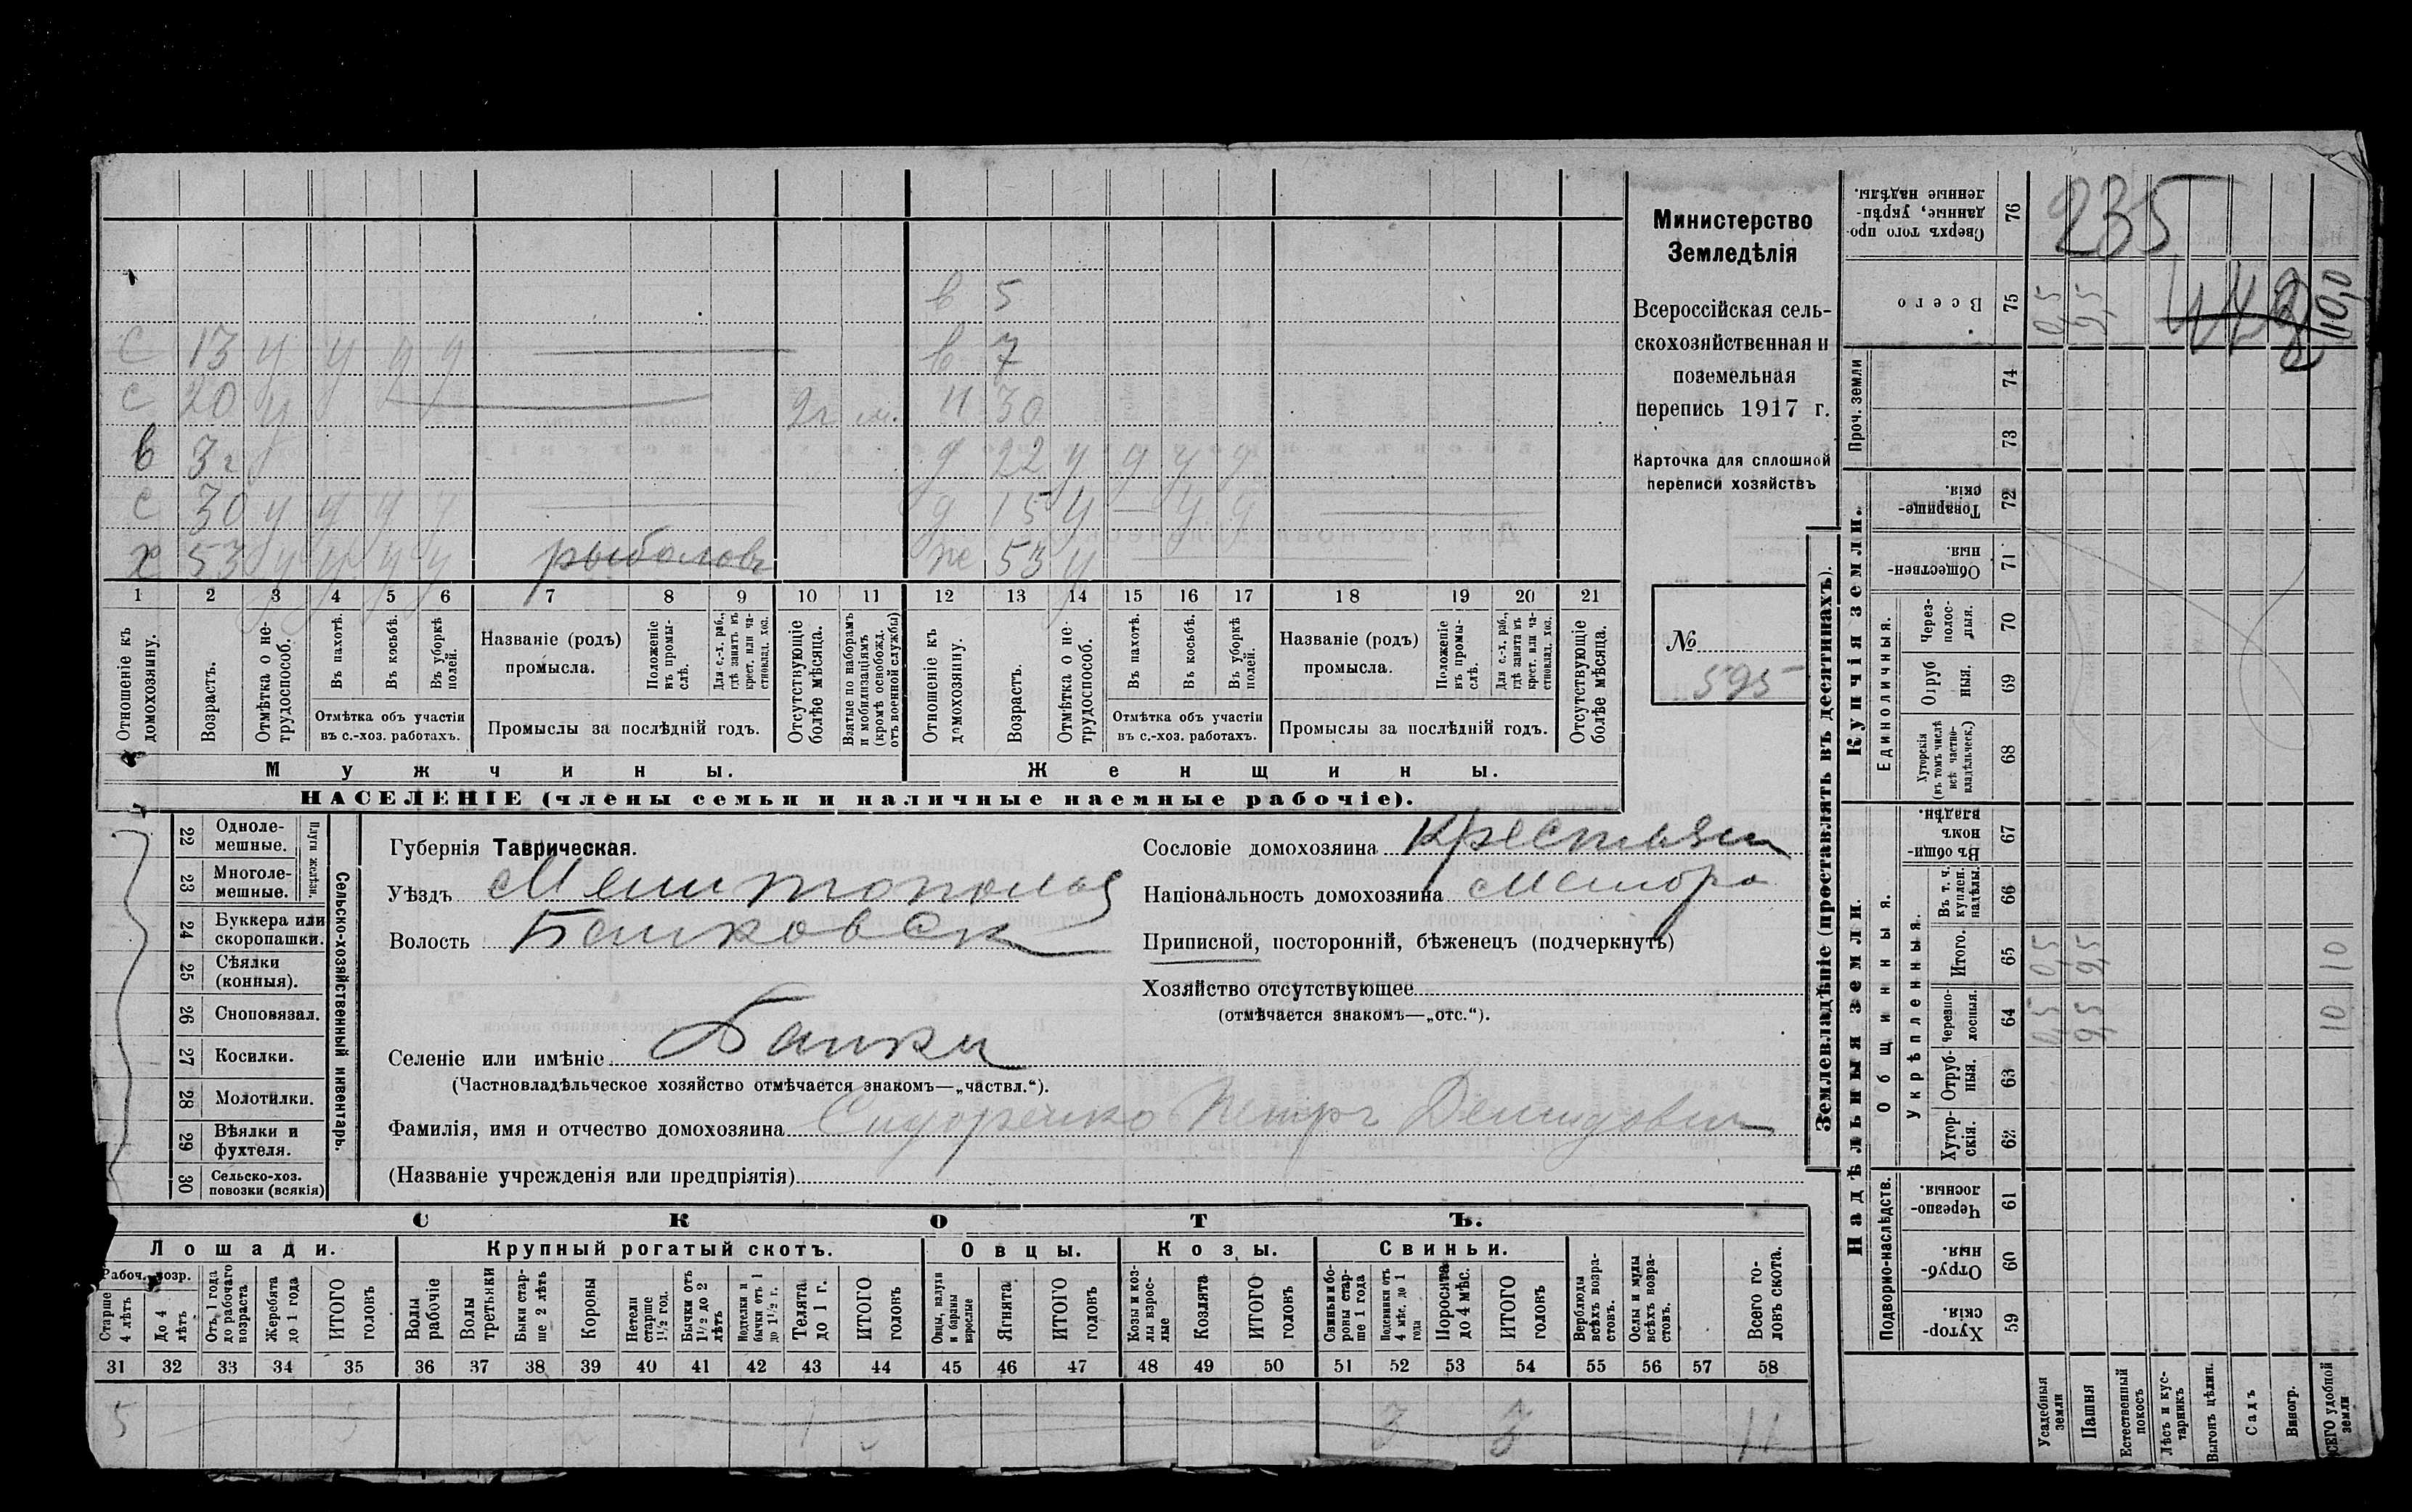 в 5
с 13 у у у у в 7
с 20 у 2 г м. н 30
в 3 г д 22 у у у у
с 30 у у у у д 15 у — у у
х 53 у у у у рыболовъ ж 53 у
1 2 3 4 5 6 7 8 9 10 11 12 13 14 15 16 17 18 19 20 21
Отношеніе къ домохозяину.
Возрастъ.
Отмѣтка о не-
трудоспособ.
Въ пахотѣ.
Въ косьбѣ.
Въ уборкѣ
полей.
Отмѣтка объ участіи
въ с.-хоз. работахъ.
Названіе (родъ)
промысла.
Положеніе
въ промы-
слѣ.
Для с.-х. раб.,
гдѣ занятъ въ
крест. или ча-
стновлад. хоз.
Промыслы за послѣдній годъ.
Отсутствующіе
болѣе мѣсяца.
Взятые по наборамъ
и мобилизаціямъ
(кромѣ освобожд.
отъ военной службы)
Отношеніе къ
домохозяину.
Возрастъ.
Отмѣтка о не-
трудоспособ.
Въ пахотѣ.
Въ косьбѣ.
Въ уборкѣ
полей.
Отмѣтка объ участіи
въ с.-хоз. работахъ.
Названіе (родъ)
промысла.
Положеніе
въ промы-
слѣ.
Для с.-х. раб.,
гдѣ занята въ
крест. или ча-
стновлад. хоз.
Промыслы за послѣдній годъ.
Отсутствующіе
болѣе мѣсяца.
Мужчины.
Женщины.
НАСЕЛЕНІЕ (члены семьи и наличные наемные рабочіе).
Министерство
Земледѣлія
Всероссійская сель-
скохозяйственная и
поземельная
перепись 1917 г.
Карточка для сплошной
переписи хозяйствъ
№
595
22 Одноле-
мешные.
23 Многоле-
мешные.
Плуги желѣзн.
24 Буккера или
скоропашки.
25 Сѣялки
(конныя).
26 Сноповязал.
27 Косилки.
28 Молотилки.
29 Вѣялки и
фухтеля.
30 Сельско-хоз.
повозки (всякія)
Сельско-хозяйственный инвентарь.
Губернія Таврическая.
Уѣздъ Мелитополь
Волость Балковск
Селеніе или имѣніе Балки
(Частновладѣльческое хозяйство отмѣчается знакомъ—„частвл.“).
Фамилія, имя и отчество домохозяина Сидоренко Петръ Демидович
(Названіе учрежденія или предпріятія)
Сословіе домохозяина Крестьян
Національность домохозяина Малоро
Приписной, посторонній, бѣженецъ (подчеркнуть)
Хозяйство отсутствующее
(отмѣчается знакомъ—„отс.“).
СКОТЪ.
Лошади. Крупный рогатый скотъ. Овцы. Козы. Свиньи.
Рабоч. возр.
Старше
4 лѣтъ
До 4
лѣтъ
Отъ 1 года
до рабочаго
возраста
Жеребята
до 1 года
ИТОГО
головъ
Волы
рабочіе
Волы
третьяки
Быки стар-
ше 2 лѣтъ
Коровы
Нетели
старше
1½ год.
Бычки отъ
1½ до 2
лѣтъ
Подтелки и
бычки отъ 1
до 1½ г.
Телята
до 1 г.
ИТОГО
головъ
Овцы, валухи
и бараны
взрослые
Ягнята
ИТОГО
головъ
Козы и коз-
лы взрос-
лые
Козлята
ИТОГО
головъ
Свиньи и бо-
ровы стар-
ше 1 года
Подсвинки отъ
4 мѣс. до 1
года
Поросята
до 4 мѣс.
ИТОГО
головъ
Верблюды
всѣхъ возра-
стовъ.
Ослы и мулы
всѣхъ возра-
стовъ.
Всего го-
ловъ скота.
31 32 33 34 35 36 37 38 39 40 41 42 43 44 45 46 47 48 49 50 51 52 53 54 55 56 57 58
5 5 1 3 3 11
Землевладѣніе (проставлять въ десятинахъ).
Купчія земли.
Надѣльныя земли.
Сверхъ того про-
данные, укрѣп-
ленные надѣлы.
76
235
Всего
75
0,5 9,5 10,0
Проч. земли
74
73
Товарище-
скія.
72
Обществен-
ныя.
71
Единоличныя.
Через-
полос-
ныя.
70
Отруб
ныя.
69
Хуторскія
(въ томъ числѣ
всѣ частно-
владѣльческ.)
68
Общинныя.
Въ общи-
номъ
владѣн.
67
Укрѣпленныя.
Въ т. ч.
куплен.
надѣлы.
66
Итого.
65
0,5 9,5 10
Черезпо-
лосныя.
64
0,5 9,5 10
Отруб-
ныя.
63
Хутор-
скія.
62
Подворно-наслѣдств.
Черезпо-
лосныя.
61
Отруб-
ныя.
60
Хутор-
скія.
59
Усадебныя
земли
Пашня
Естественный
покосъ
Лѣсъ и кус-
тарникъ
Выгонъ цѣлин.
Садъ
Виногр.
ВСЕГО удобной
земли